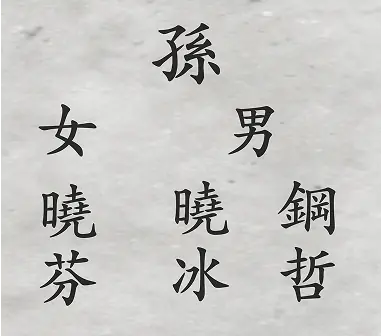 孫
女 男
曉 曉 鋼
芬 冰 哲